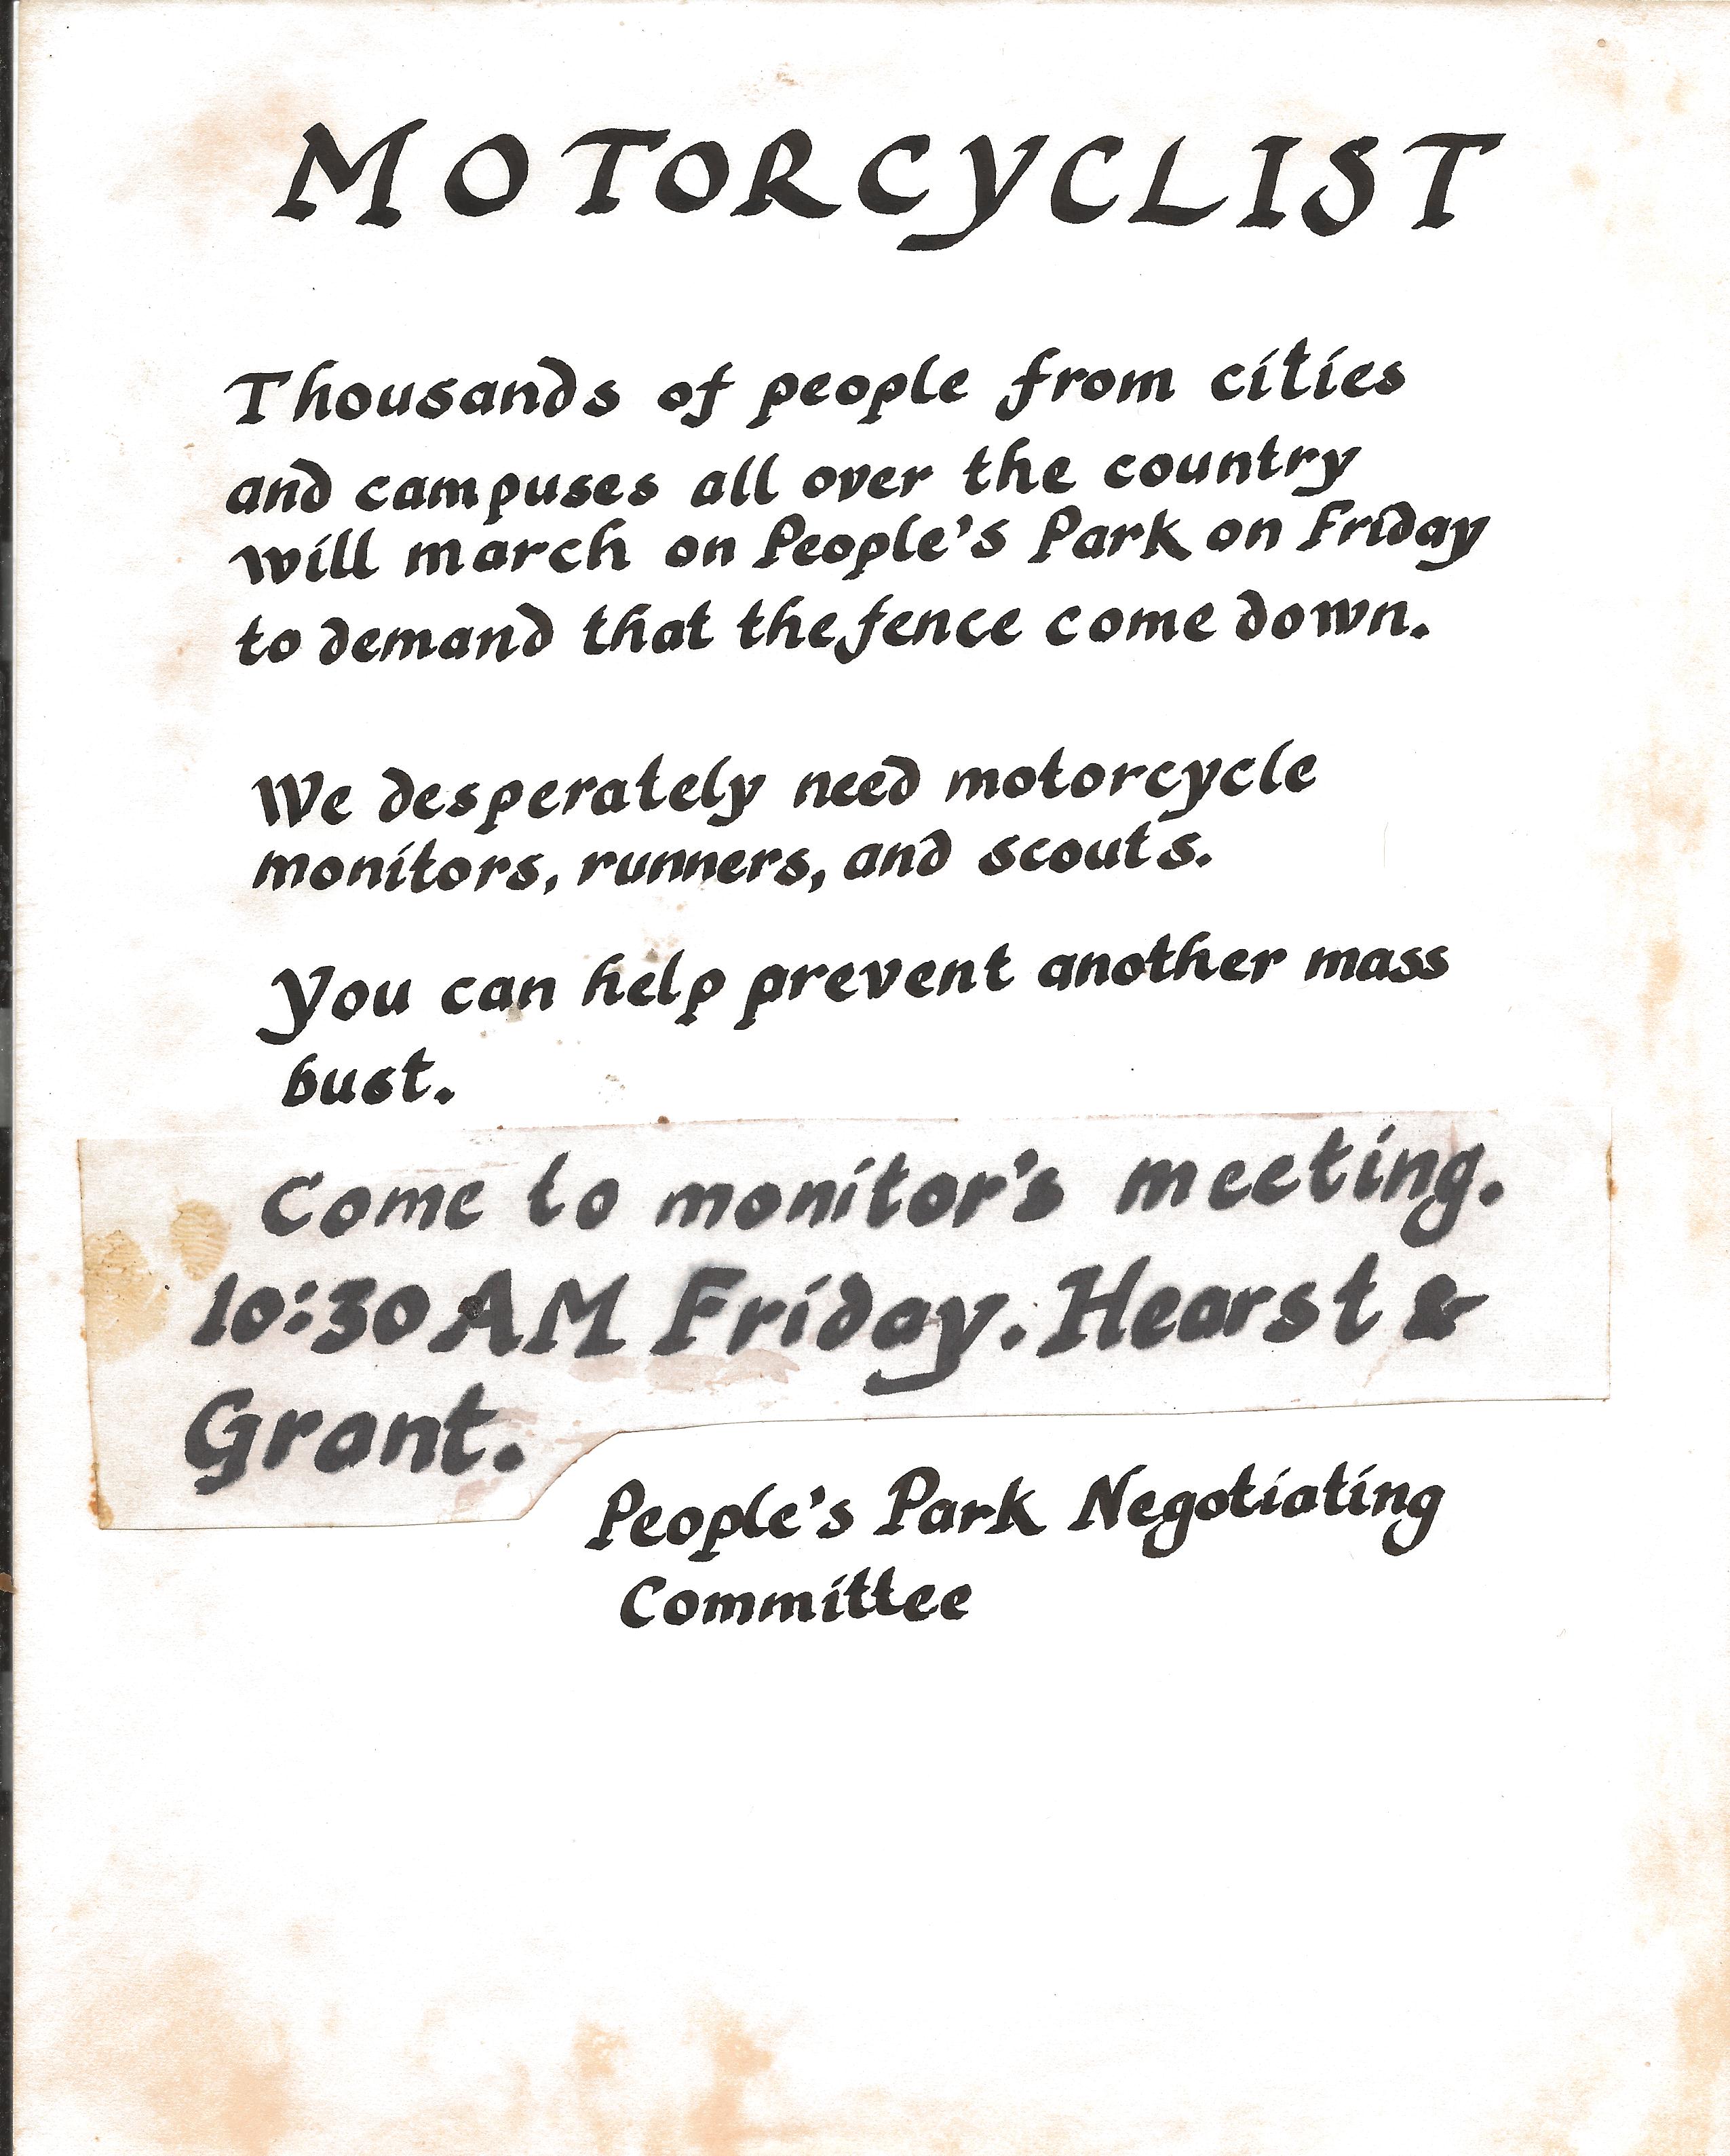 MOTORCYCLIST
Thousands of people from cities
and campuses all over the country
will march on People's Park on Friday
to demand that the fence come down.
We desperately need motorcycle
monitors, runners, and scouts.
You can help prevent another mass
bust.
Come to monitor's meeting.
10:30 AM Friday. Hearst &
Grant.
People's Park Negotiating
Committee